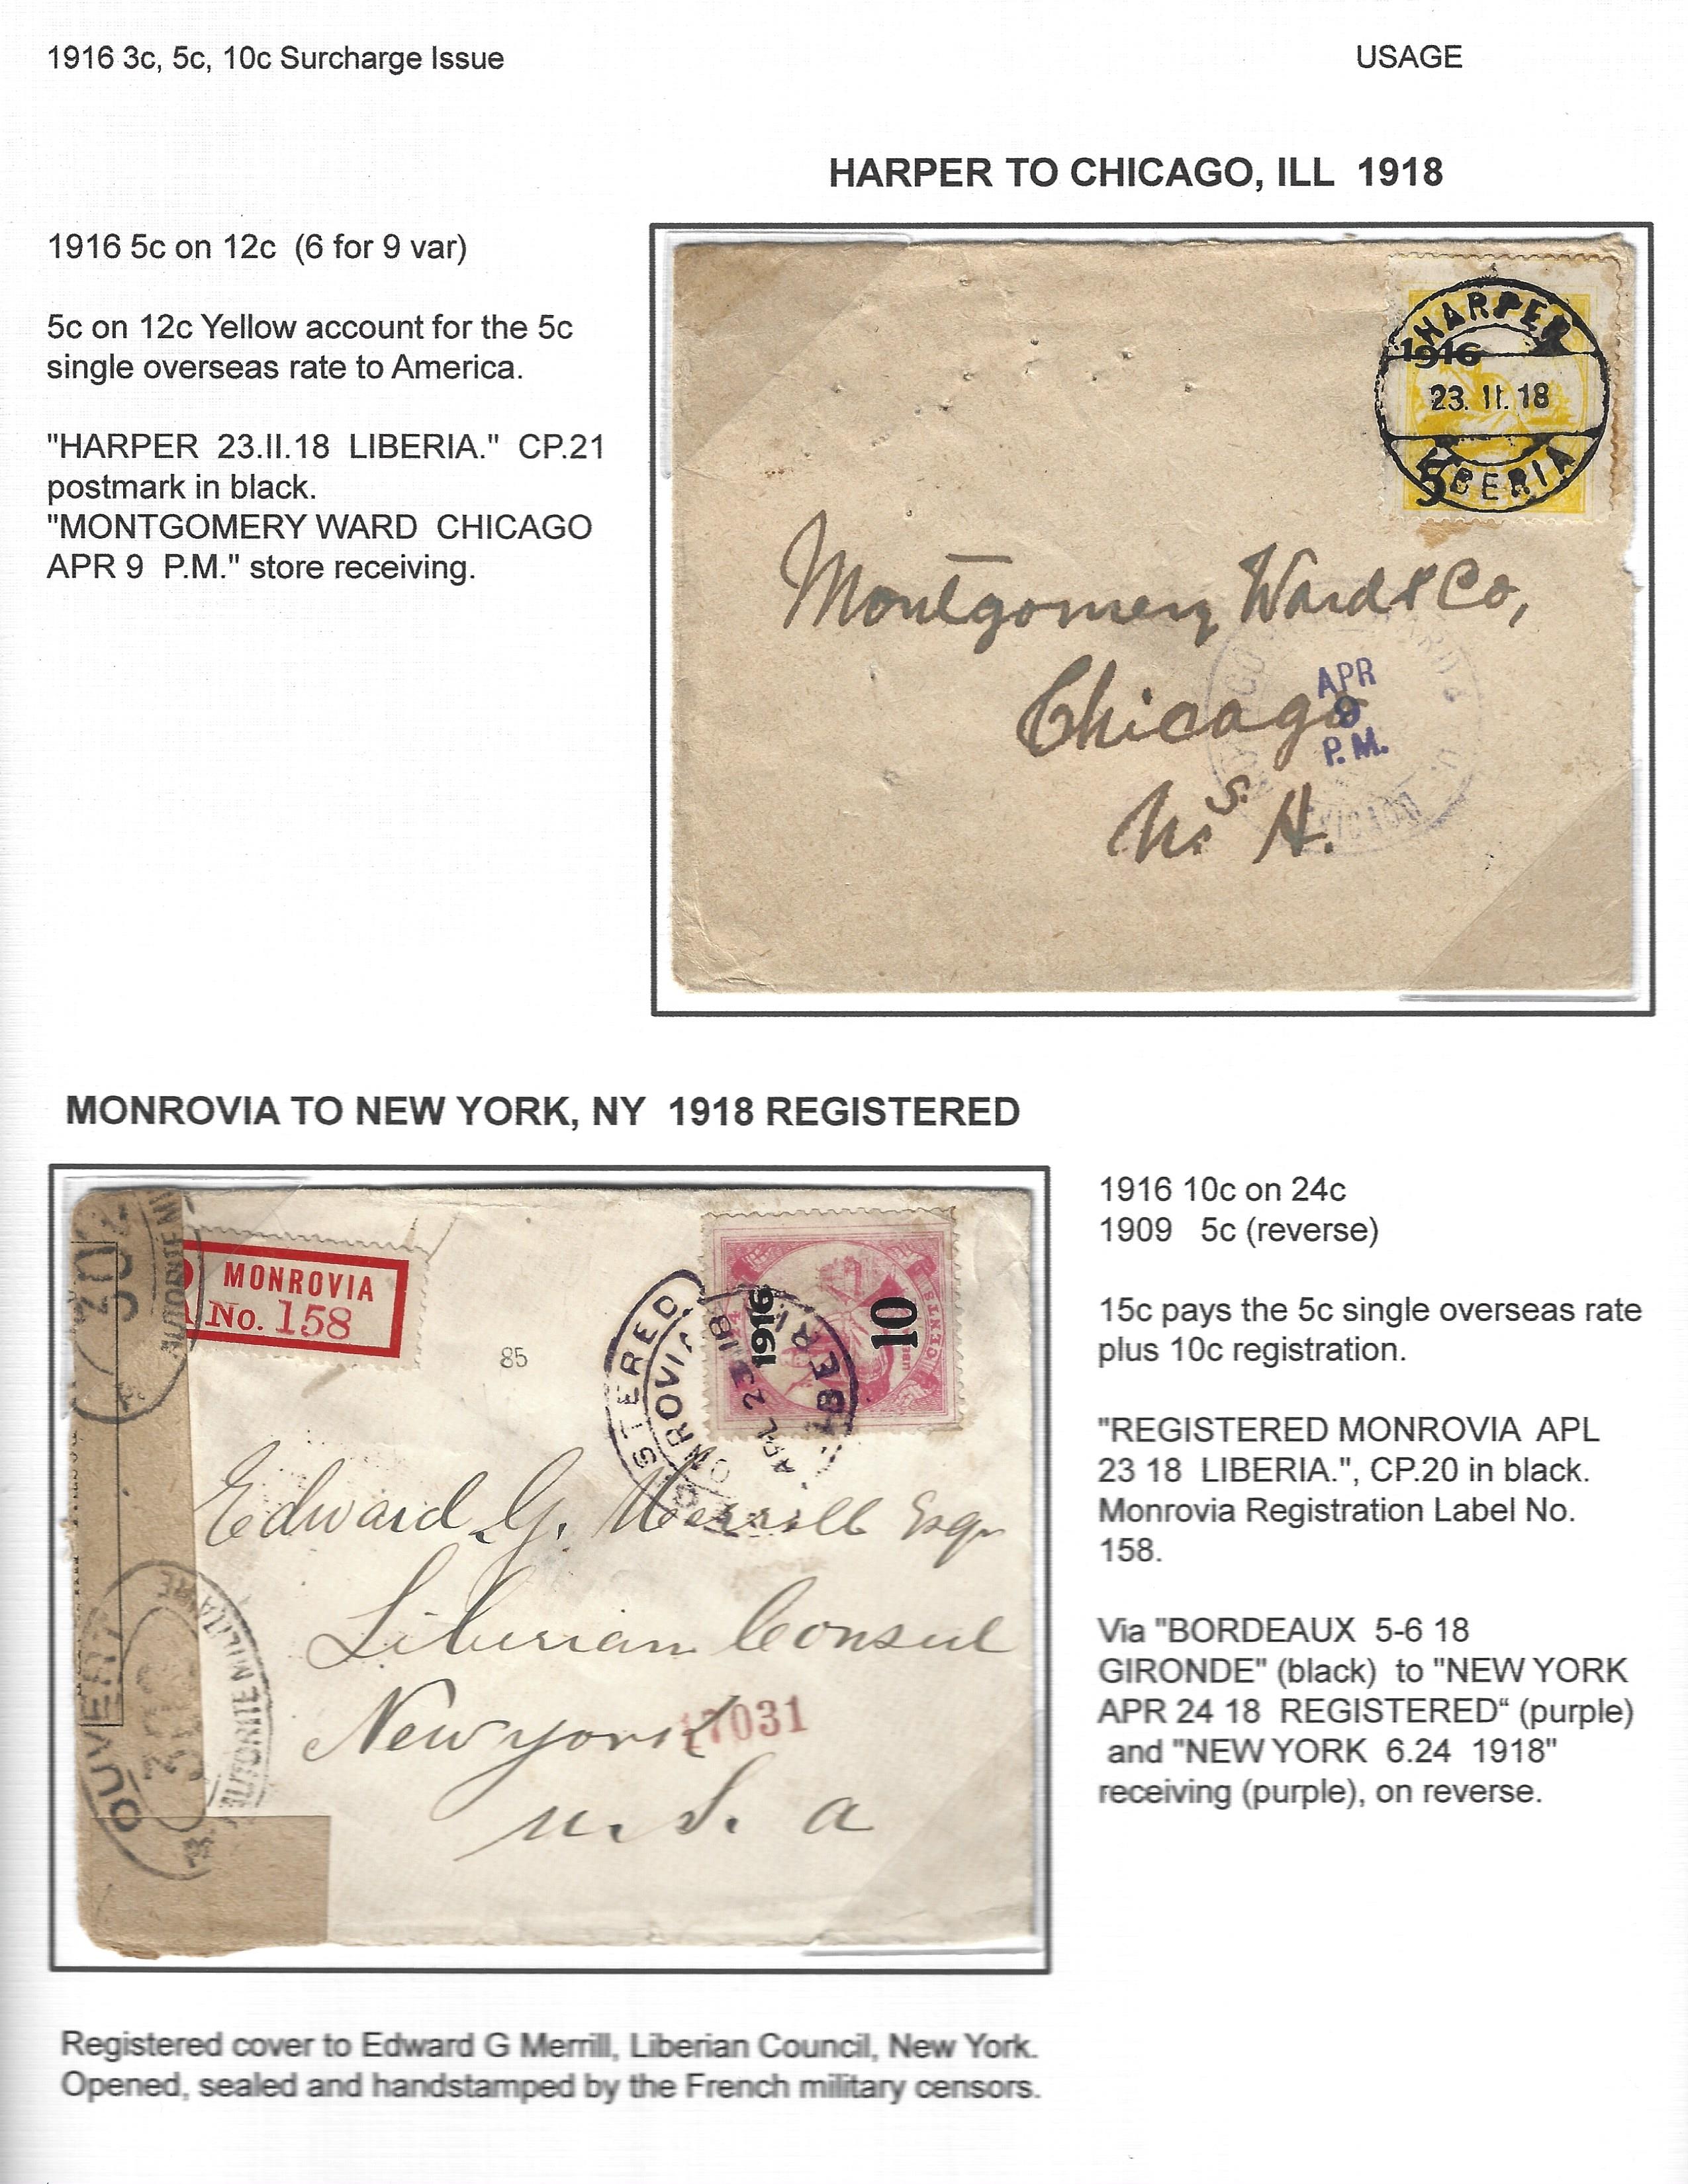 1916 3c, 5c, 10c Surcharge Issue
USAGE
HARPER TO CHICAGO, ILL 1918
1916 5c on 12c (6 for 9 var)
5c on 12c Yellow account for the 5c
single overseas rate to America.
"HARPER 23.II.18 LIBERIA." CP.21
postmark in black.
"MONTGOMERY WARD CHICAGO
APR 9 P.M." store receiving.
HARPER
1916
23. II. 18
5
LIBERIA
Montgomery Ward & Co,
Chicago
APR
9
P.M.
CHICAGO
MONROVIA TO NEW YORK, NY 1918 REGISTERED
MONROVIA
No. 158
85
STERED
ROVIA
APL 23 18
1916
10
Edward G. Merrill Esqr
Liberian Consul
New york
17031
u. S. a
OUVERT
AUTORITE MILITAIRE
1916 10c on 24c
1909 5c (reverse)
15c pays the 5c single overseas rate
plus 10c registration.
"REGISTERED MONROVIA APL
23 18 LIBERIA.", CP.20 in black.
Monrovia Registration Label No.
158.
Via "BORDEAUX 5-6 18
GIRONDE" (black) to "NEW YORK
APR 24 18 REGISTERED“ (purple)
and "NEW YORK 6.24 1918"
receiving (purple), on reverse.
Registered cover to Edward G Merrill, Liberian Council, New York.
Opened, sealed and handstamped by the French military censors.